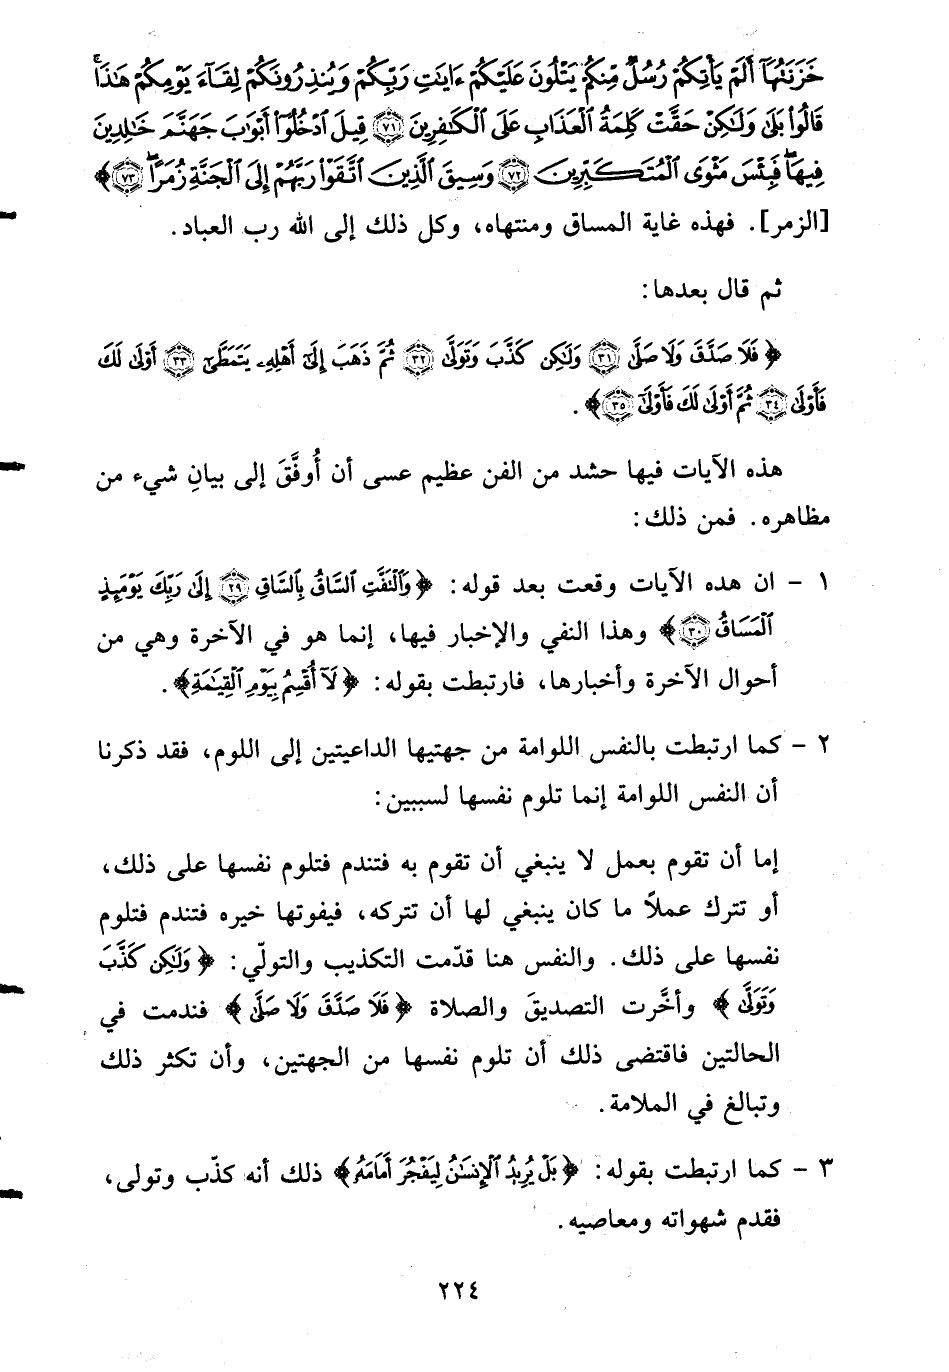 خَزَنَتُهَآ أَلَمْ يَأْتِكُمْ رُسُلٌ مِّنكُمْ يَتْلُونَ عَلَيْكُمْ ءَايَٰتِ رَبِّكُمْ وَيُنذِرُونَكُمْ لِقَآءَ يَوْمِكُمْ هَٰذَا ۚ
قَالُوا۟ بَلَىٰ وَلَٰكِنْ حَقَّتْ كَلِمَةُ ٱلْعَذَابِ عَلَى ٱلْكَٰفِرِينَ ﴿٧١﴾ قِيلَ ٱدْخُلُوٓا۟ أَبْوَٰبَ جَهَنَّمَ خَٰلِدِينَ
فِيهَا ۖ فَبِئْسَ مَثْوَى ٱلْمُتَكَبِّرِينَ ﴿٧٢﴾ وَسِيقَ ٱلَّذِينَ ٱتَّقَوْا۟ رَبَّهُمْ إِلَى ٱلْجَنَّةِ زُمَرًا ۖ ﴿٧٣﴾ ﴾
[الزمر]. فهذه غاية المساق ومنتهاه، وكل ذلك إلى الله رب العباد.
ثم قال بعدها:
﴿ فَلَا صَدَّقَ وَلَا صَلَّىٰ ﴿٣١﴾ وَلَٰكِن كَذَّبَ وَتَوَلَّىٰ ﴿٣٢﴾ ثُمَّ ذَهَبَ إِلَىٰٓ أَهْلِهِۦ يَتَمَطَّىٰٓ ﴿٣٣﴾ أَوْلَىٰ لَكَ
فَأَوْلَىٰ ﴿٣٤﴾ ثُمَّ أَوْلَىٰ لَكَ فَأَوْلَىٰٓ ﴿٣٥﴾ ﴾ .
هذه الآيات فيها حشد من الفن عظيم عسى أن أُوفَّقَ إلى بيانِ شيء من
مظاهره. فمن ذلك:
١ - ان هذه الآيات وقعت بعد قوله: ﴿ وَٱلْتَفَّتِ ٱلسَّاقُ بِٱلسَّاقِ ﴿٢٩﴾ إِلَىٰ رَبِّكَ يَوْمَئِذٍ
ٱلْمَسَاقُ ﴿٣٠﴾ ﴾ وهذا النفي والإخبار فيها، إنما هو في الآخرة وهي من
أحوال الآخرة وأخبارها، فارتبطت بقوله: ﴿ لَآ أُقْسِمُ بِيَوْمِ ٱلْقِيَٰمَةِ ﴾ .
٢ - كما ارتبطت بالنفس اللوامة من جهتيها الداعيتين إلى اللوم، فقد ذكرنا
أن النفس اللوامة إنما تلوم نفسها لسببين:
إما أن تقوم بعمل لا ينبغي أن تقوم به فتندم فتلوم نفسها على ذلك،
أو تترك عملاً ما كان ينبغي لها أن تتركه، فيفوتها خيره فتندم فتلوم
نفسها على ذلك. والنفس هنا قدّمت التكذيب والتولّي: ﴿ وَلَٰكِن كَذَّبَ
وَتَوَلَّىٰ ﴾ وأخَّرت التصديقَ والصلاة ﴿ فَلَا صَدَّقَ وَلَا صَلَّىٰ ﴾ فندمت في
الحالتين فاقتضى ذلك أن تلوم نفسها من الجهتين، وأن تكثر ذلك
وتبالغ في الملامة.
٣ - كما ارتبطت بقوله: ﴿ بَلْ يُرِيدُ ٱلْإِنسَٰنُ لِيَفْجُرَ أَمَامَهُۥ ﴾ ذلك أنه كذّب وتولى،
فقدم شهواته ومعاصيه.
٢٢٤